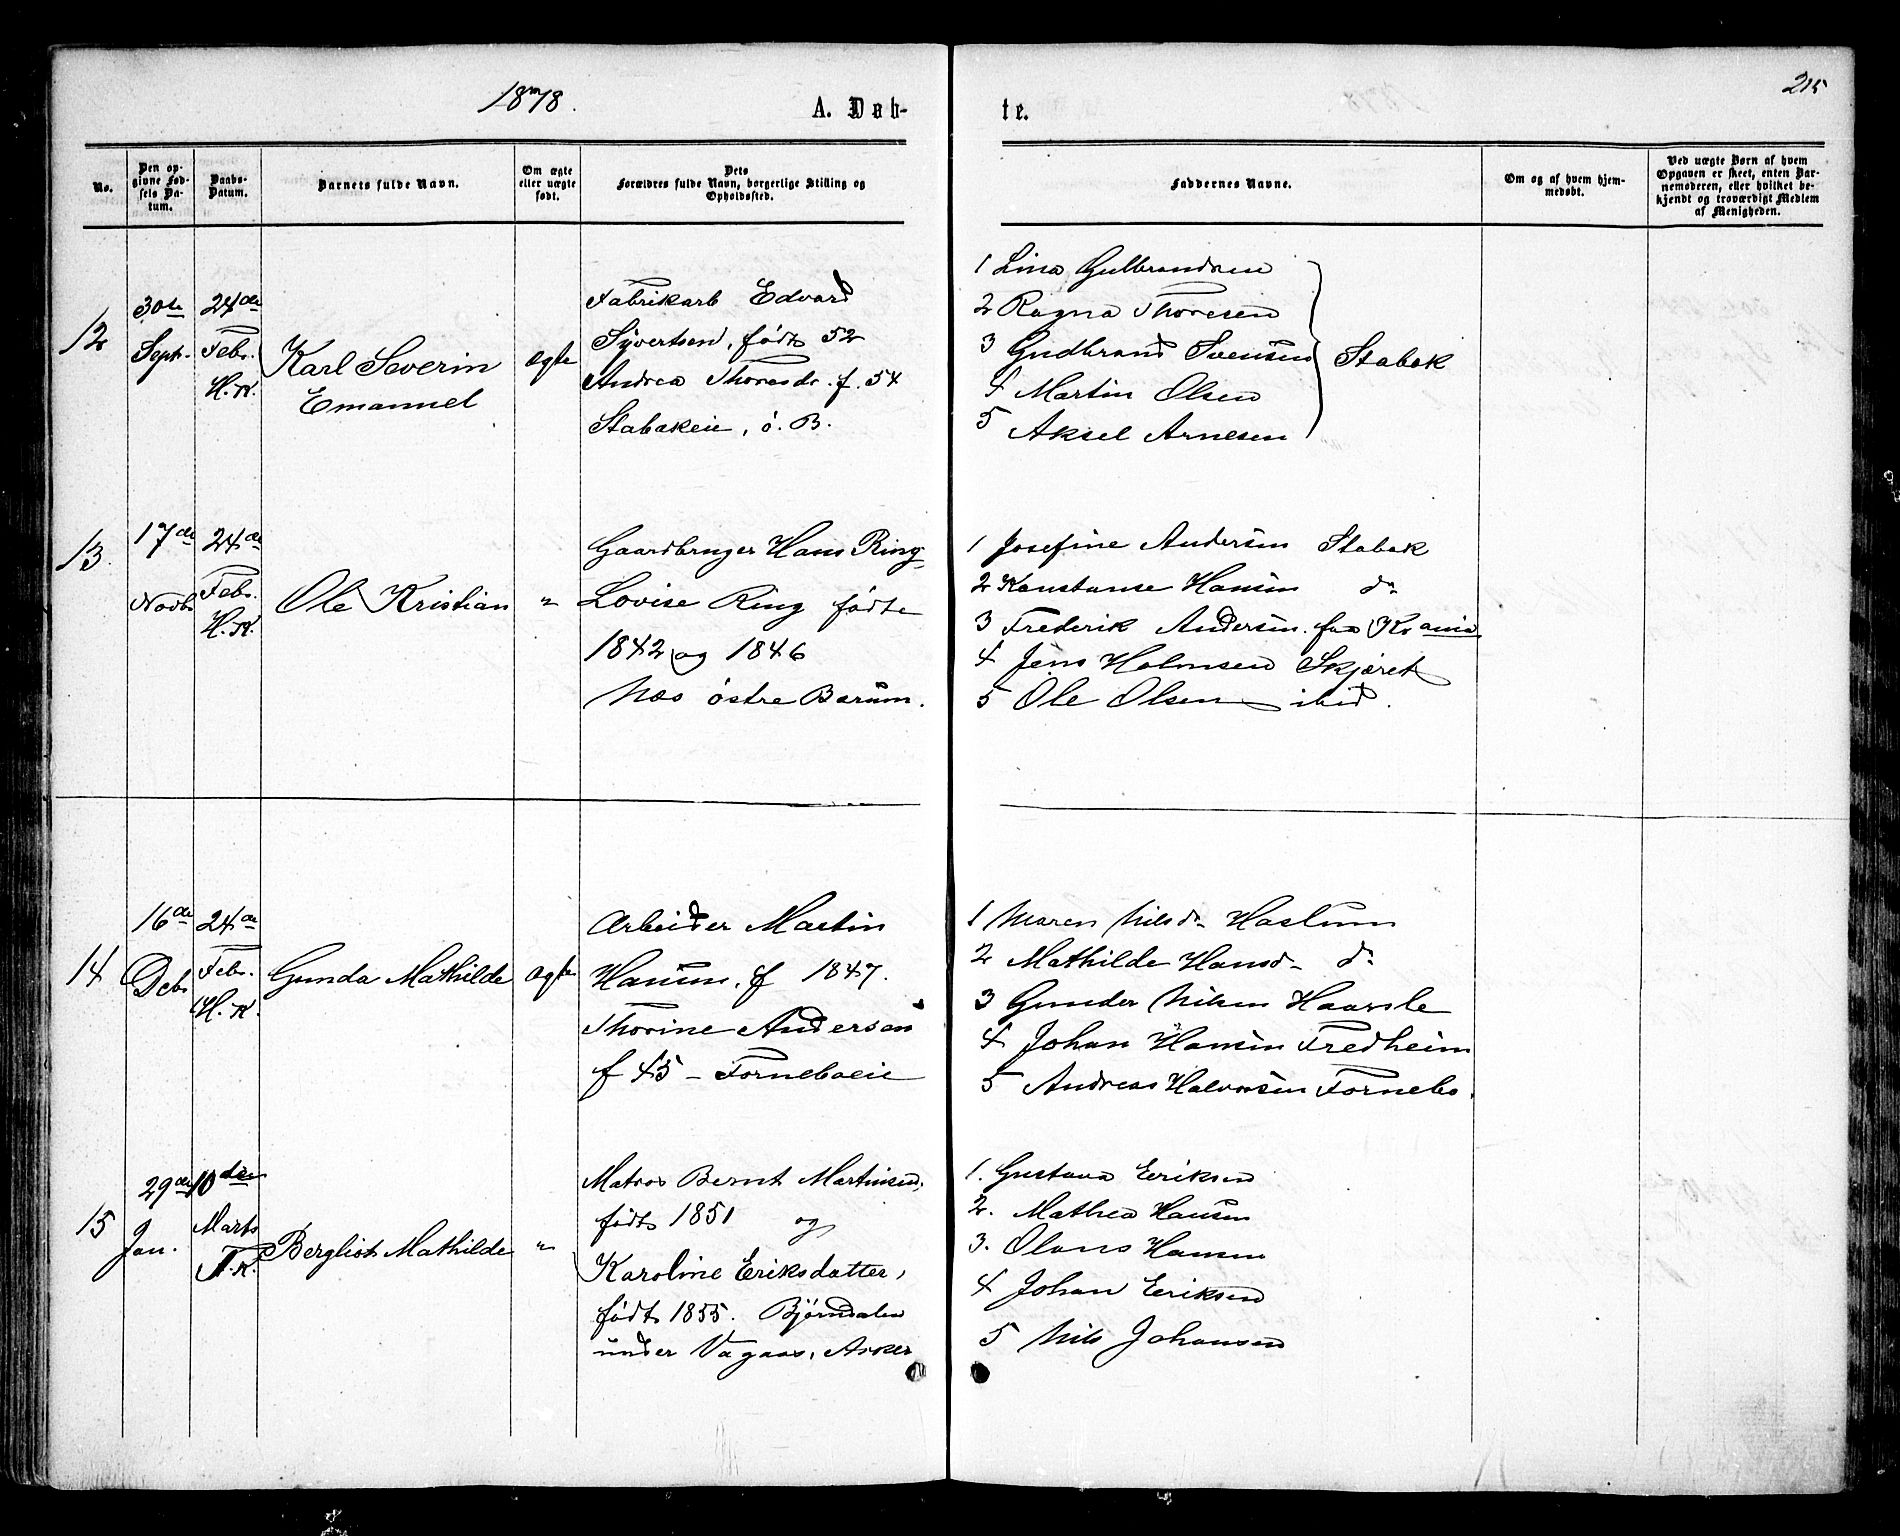 1878.
A. Døb-
te.
215
No.
Den op-
givne Fød-
sels Da-
tum.
Daabs-
Datum.
Barnets fulde Navn.
Om ægte
eller uægte
født.
Dets
Forældres fulde Navn, borgerlige Stilling og
Opholdssted.
Faddernes Navne.
Om og af hvem hjem-
medøbt.
Ved uægte Børn af hvem
Opgaven er skeet, enten Bar-
nemoderen, eller hvilket be-
kjendt og troværdigt Medlem
af Menigheden.
12
30te
Septr.
24de
Febr.
H.K.
Karl Severin
Emanuel
ægte
Fabrikarb Edvard
Syvertsen, født 52
Andrea Thoresdr. f. 54
Stabækeie, ö. B.
1 Lina Gulbrandsen
2 Ragna Thoresen
3 Gudbrand Svensen
4 Martin Olsen
5 Aksel Arnesen
Stabæk
13.
17de
Novbr
24de
Febr.
H.K.
Ole Kristian
"
Gaardbruger Hans Ring,
Lovise Ring födte
1842 og 1846
Næs östre Bærum.
1 Josefine Andersen Stabæk
2 Konstanse Hansen do
3 Frederik Andersen fra Krania
4 Jens Holmsen Skjæret
5 Ole Olsen ibid.
14
16de
Debr
24de
Febr.
H.K.
Gunda Mathilde
ægte
Arbeider Martin
Hansen, f 1847.
Thorine Andersen
f 45 - Forneboeie
1 Maren Nilsdr Haslum
2 Mathilde Hansdr do
3 Gunder Nilsen
4 Johan Hansen Fredheim
5 Andreas Halvorsen Fornebo.
15
29de
Jan.
10de
Marts
T.K.
Bergliot Mathilde
"
Matros Bernt Martinsen,
født 1851 og
Karoline Eriksdatter,
født 1855. Björndalen
under Vagaas, Asker
1. Gustava Eriksen
2. Mathea Hansen
3. Olaus Hansen
4 Johan Eriksen
5 Nils Johansen